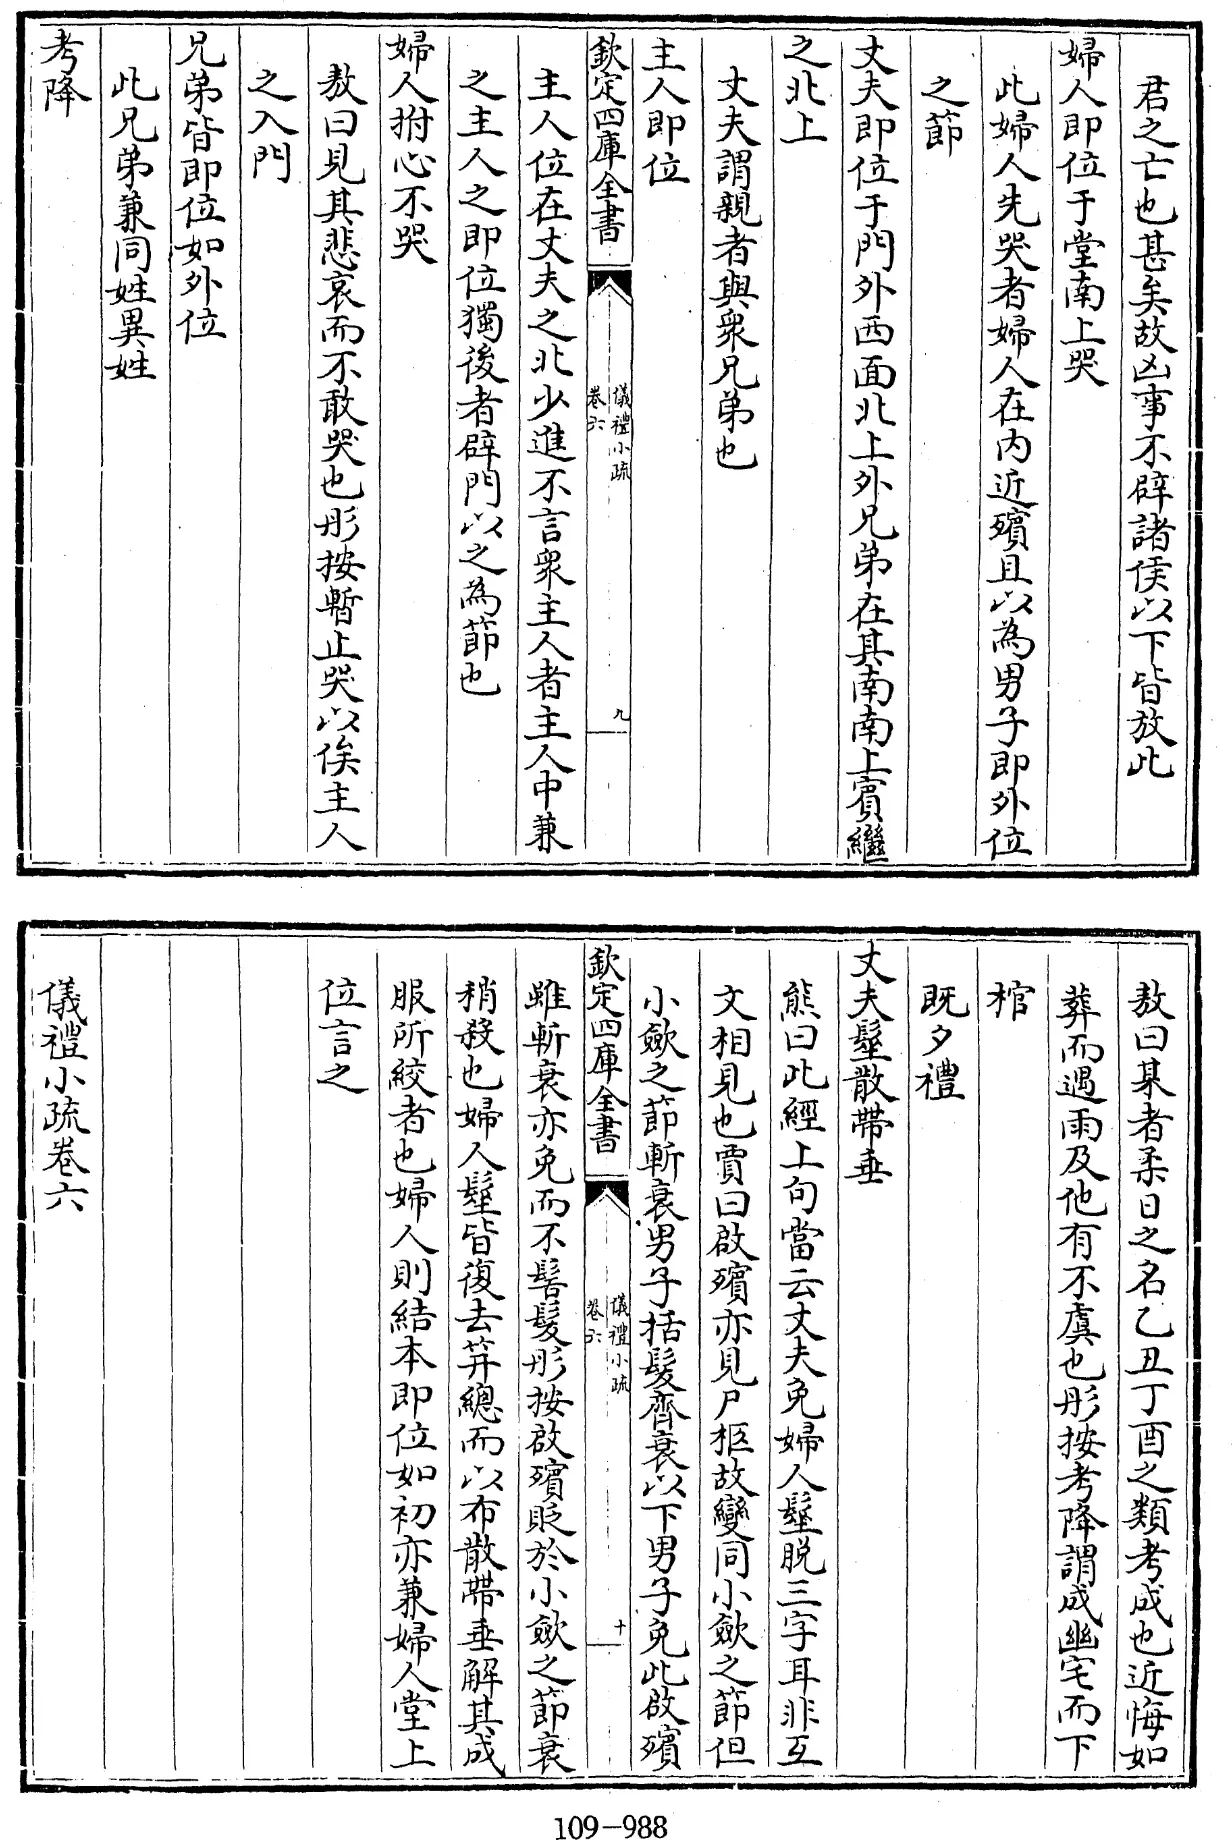 君之亡也甚矣故凶事不辟諸侯以下皆放此
婦人即位于堂南上哭
此婦人先哭者婦人在内近殯且以為男子即外位
之節
丈夫即位于門外西面北上外兄弟在其南南上賓繼
之北上
丈夫謂親者與衆兄弟也
主人即位
欽定四庫全書
儀禮小疏
卷六
九
主人位在丈夫之北少進不言衆主人者主人中兼
之主人之即位獨後者辟門以之為節也
婦人拊心不哭
敖曰見其悲哀而不敢哭也彤按暫止哭以俟主人
之入門
兄弟皆即位如外位
此兄弟兼同姓異姓
考降
敖曰某者柔日之名乙丑丁酉之類考成也近悔如
葬而遇雨及他有不虞也彤按考降謂成幽宅而下
棺
既夕禮
丈夫髽散帶垂
熊曰此經上句當云丈夫免婦人髽脱三字耳非互
文相見也賈曰啟殯亦見尸柩故變同小斂之節但
小斂之節斬衰男子括髮齊衰以下男子免此啟殯
欽定四庫全書
儀禮小疏
卷六
十
雖斬衰亦免而不髻髮彤按啟殯貶於小斂之節衰
稍殺也婦人髽皆復去笄總而以布散帶垂解其成
服所絞者也婦人則結本即位如初亦兼婦人堂上
位言之
儀禮小疏卷六
109-988